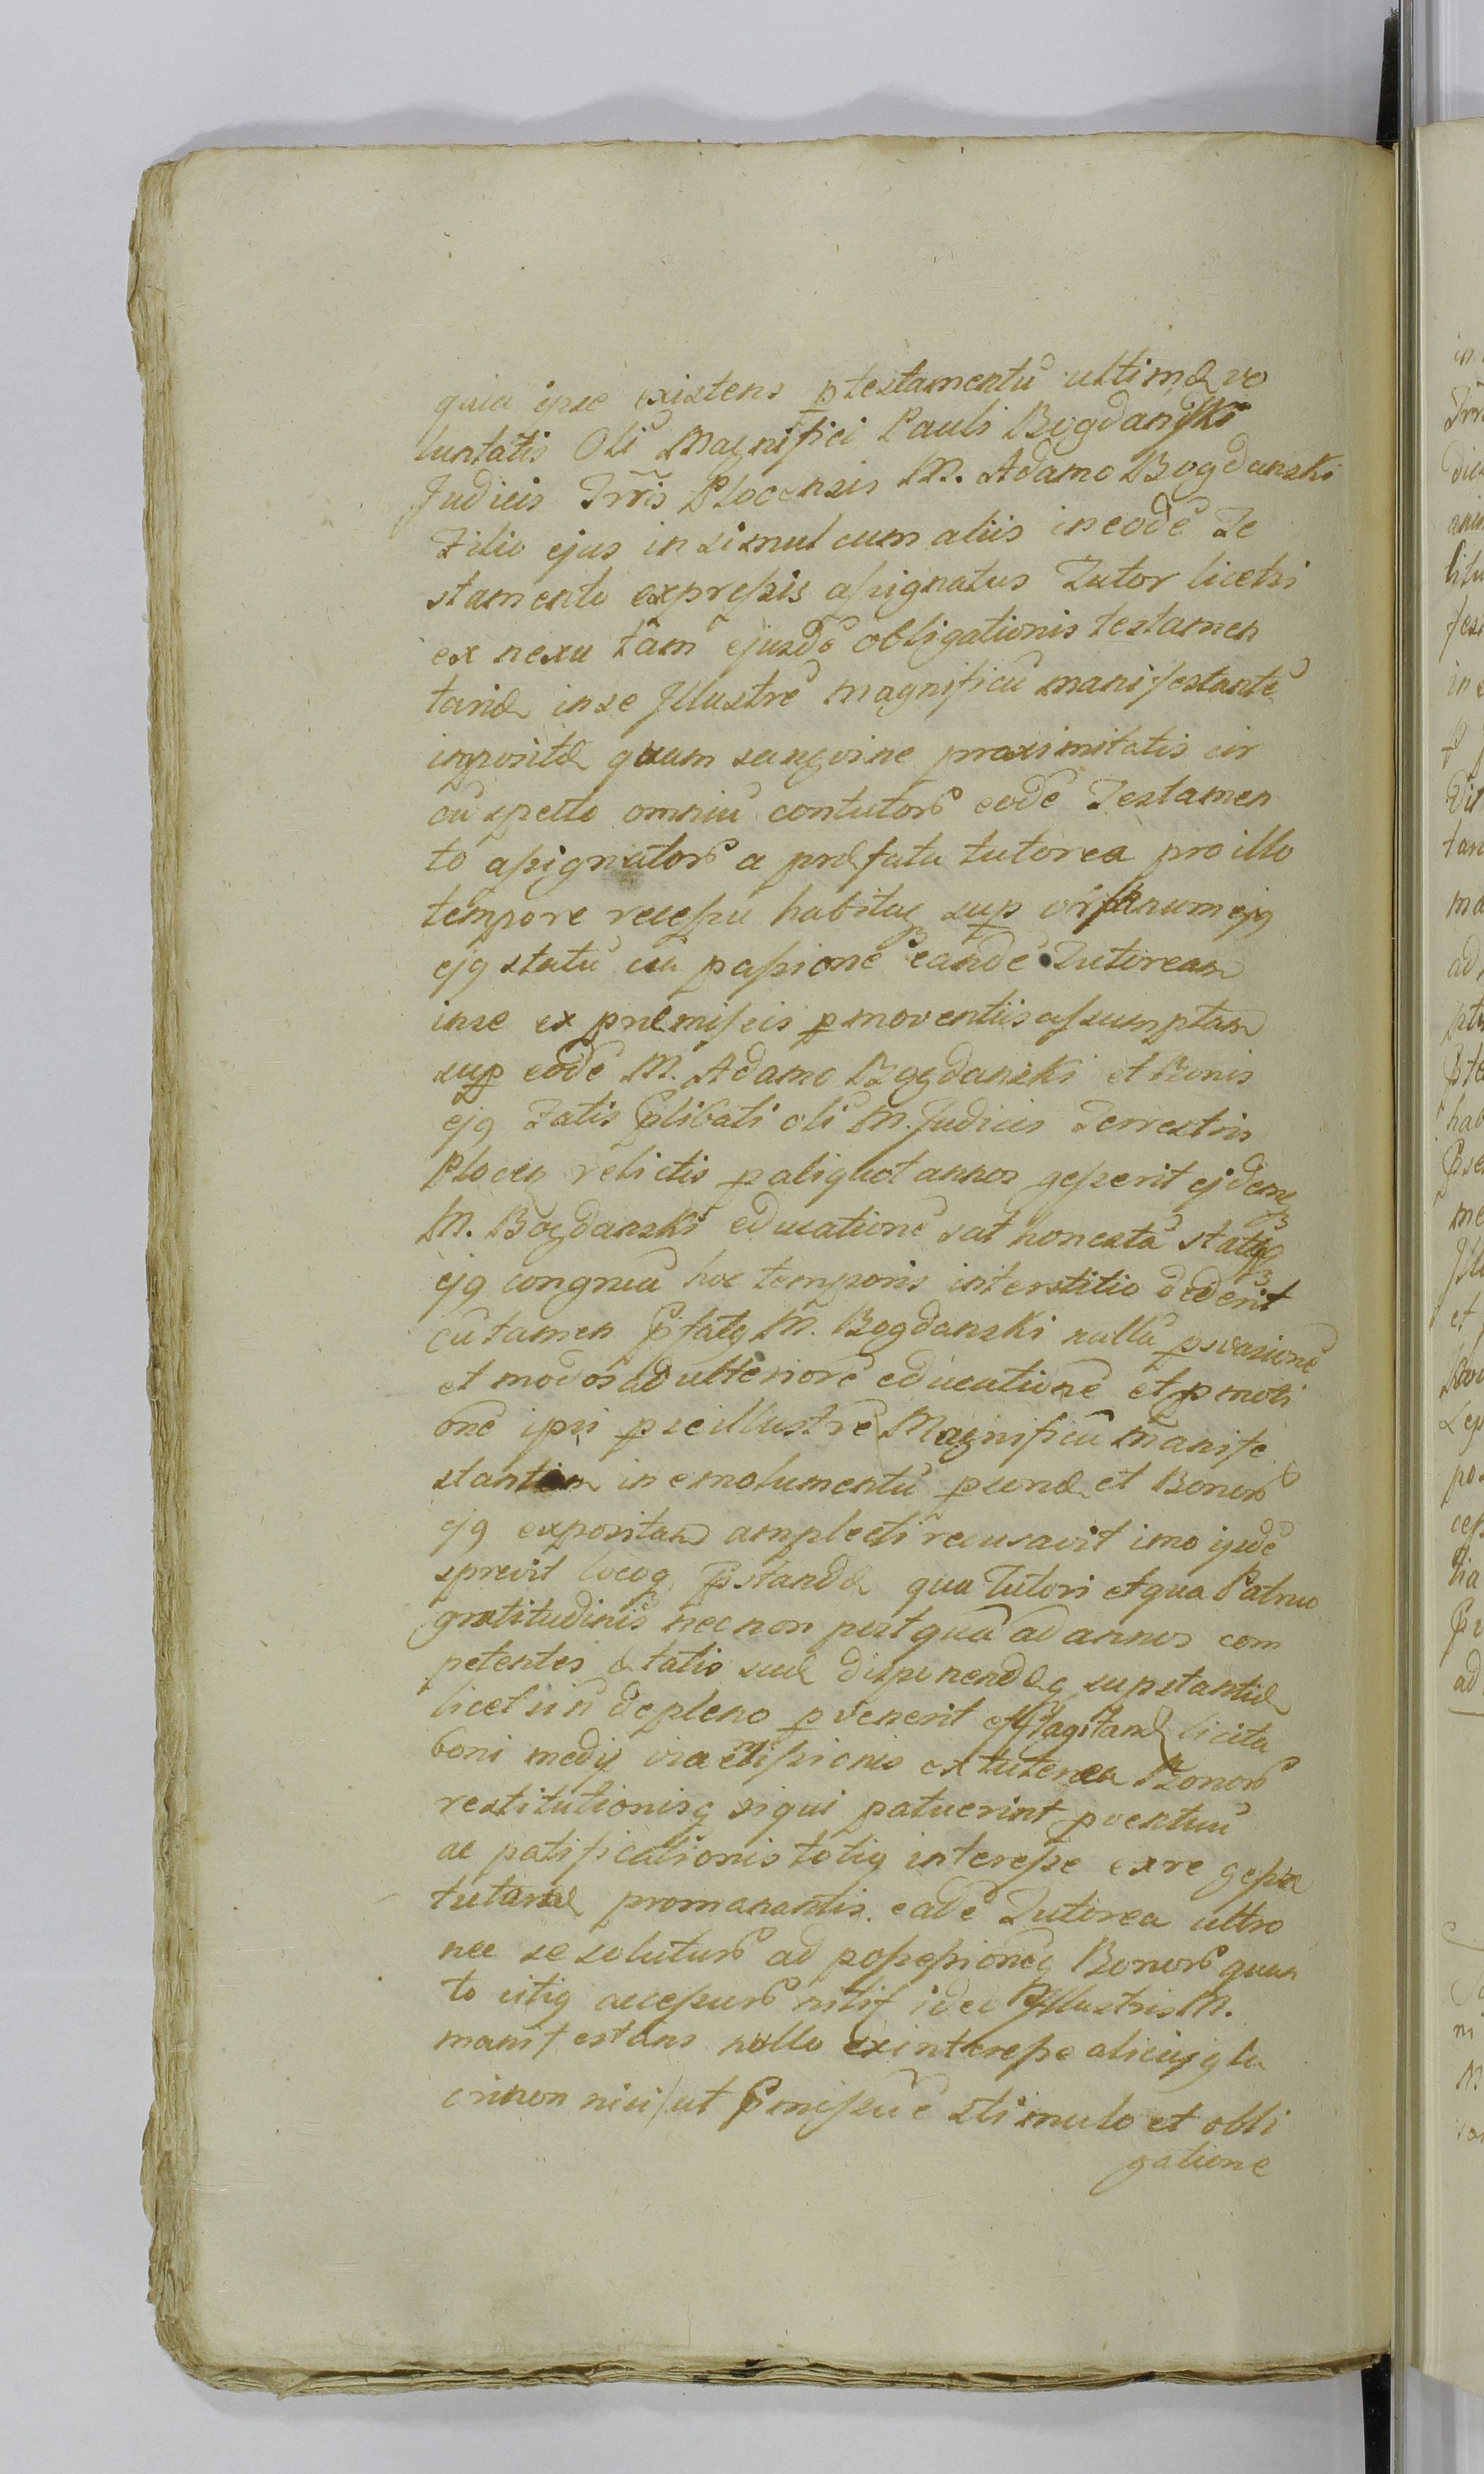 quia ipse existens p testamentū ultimæ vo
luntatis Oli Magnifici Pauli Bogdański
Judicis Trris Plocensis M. Adamo Bogdanski
Filio ejus in simul cum aliis in eodē Te
stamento expreſsis aſsignatus Tutor licetsi
ex nexu tam ejusdē obligationis testamen
tariæ in se Jllustrē magnificū manifestantē
impositæ quam sangvine proximitatis cir
cū specto omniū contutorō eodē Testamen
to aſsignatorō a præfata tutorea pro illo
tempore receſsu habitaq sup orphanum ejq
ejq statū cū paſsionē eandē Tutoream
in se ex præmiſsis p moventiis aſsumptam
sup eodē M. Adamo Bogdanski et Bonis
ejq Fatis plibati oli M. Judicis Terrestris
Plocen relictis p aliquot annos geſserit ejdemq
M. Bogdanski educationē sat honestā statuq
ejq congruā hoc temporis interstitio dederit
cū tamen pfatq M. Bogdanski nullā psvasionē
et modos ad ulteriorē educationē et pmoti
onē ipsi p se illustrē Magnificū Manife
stantem in emolumentū psonæ et Bonorō
ejq expositam amplecti recusavit imo ipsdē
sprevit locoq pstandæ qua Tutori et qua Patruo
gratitudinis nec non postquā ad annos com
petentes ætatis suæ disponendæq supstantiæ
licet nn de pleno pvenerit efflagitandi licita
boni medij via emiſsionis ex tutorea Bonorō
restitutionisq siqui patuerint pventuū
ac patificationis totiq intereſse ex re geſsæ
tutoreæ promanantis eadē Tutorea ultro
nee se soluturō ad poſseſsionēq Bonorō quan
to citiq acceſsurō nitit ideo Jllustris M.
manifestans nullo ex intereſse alicujq lu
cri non nisi ut pmiſsū ē stimulo et obli
gatione